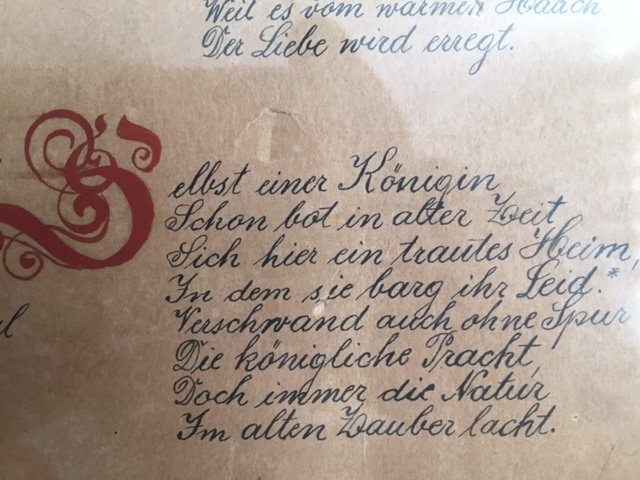 Weil es vom warmen Hauch
Der Liebe wird erregt.
Selbst einer Königin
Schon bot in alter Zeit
Sich hier ein trautes Heim,
In dem sie barg ihr Leid.*
Verschwand auch ohne Spur
Die königliche Pracht,
Doch immer die Natur
Im alten Zauber lacht.